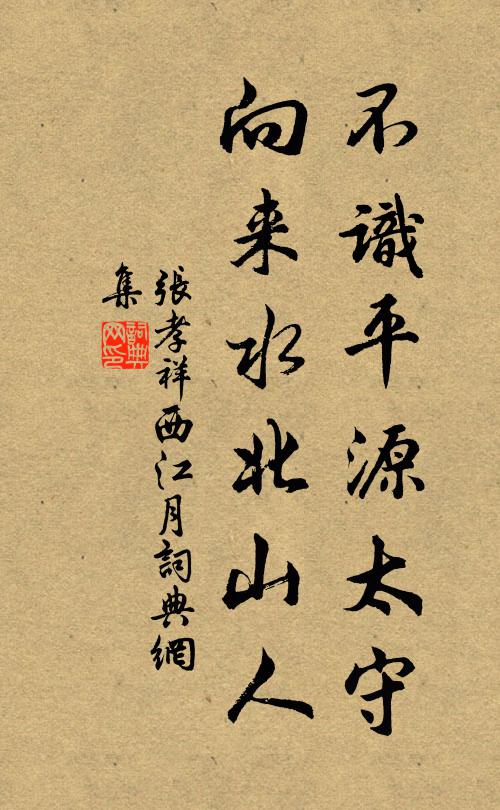 不識平源太守
向来水北山人
張孝祥西江月詞典網
集
詞典
网印